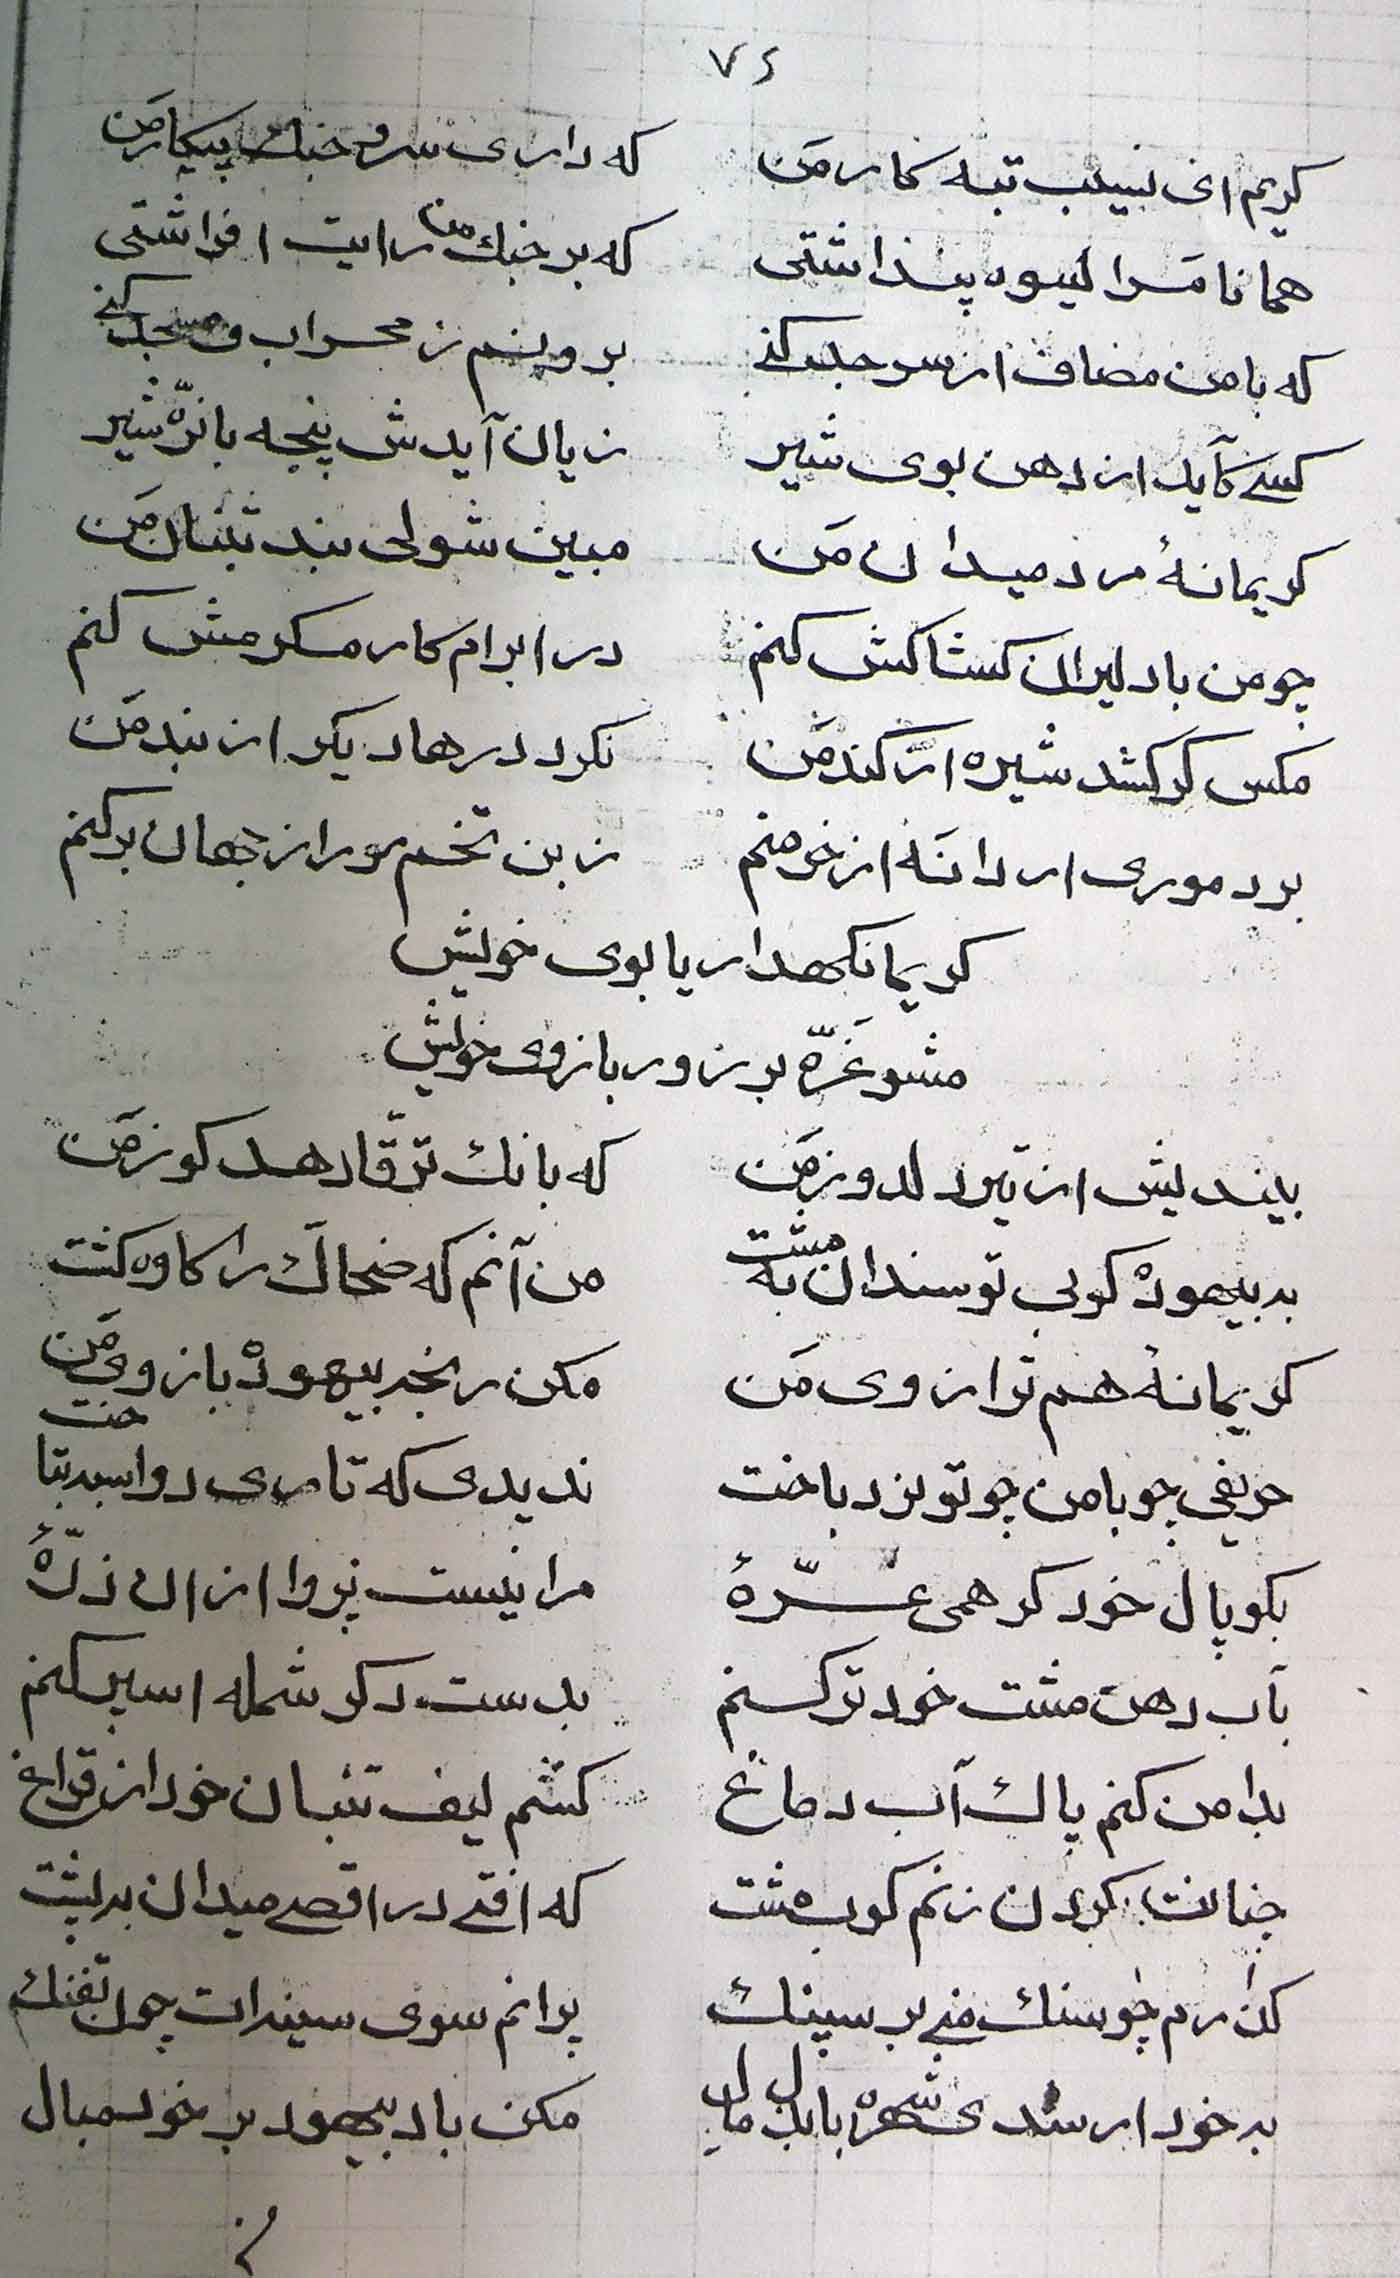 ۷۶
کریم ای نسیب تبه کار من که داری سر و جنك پیکار من
همانا مرا لیوه پنداشتی که بر جنك من رایت افراشتی
که با من مصاف از سر جد کنی برونم ز محراب و مسجد کنی
کسی کآید از دهن بوی شیر زیان آیدش پنجه با نرّه شیر
کریما نۀ مرد میدان من مبین شولی بند تنبان من
چو من با دلیران کشاکش کنم در ابرام کار مکرمش کنم
مکس کر کشد شیره از کند من نکردد رها دیکر از بند من
برد موری ار دانه از خرمنم ز بن تخم مور از جهان بر کنم
کریما نکهدار یابوی خویش
مشو غَرّه بر زور بازوی خویش
بیندیش از تیر دلدوز من که بانك ترقّا دهد کوز من
به بیهوده کوبی تو سندان به مشت من آنم که ضحاك را کاوه کشت
کریما نۀ هم ترازوی من مکن رنجه بیهوده بازوی من
حریفی چو با من چو تو نرد باخت ندیدی که تا ری دو اسبه بتاخت
بکوپال خود کر همی غرّۀ مرا نیست پروا از ان ذرّۀ
بآب دهن مشت خود تر کنم بدست دکر شمله اسپر کنم
بدامن کنم پاك آب دماغ کشم لیف تنبان خود از قراخ
چنانت بکردن زنم کوب مشت که افتی در اقصی میدان به پشت
کذارم چو سنك منی بر سپنك برانم سوی سینه ات چون تفنك
به خود ار شدی شهره با بدل مال مکن باد بیهوده بر خود مبال